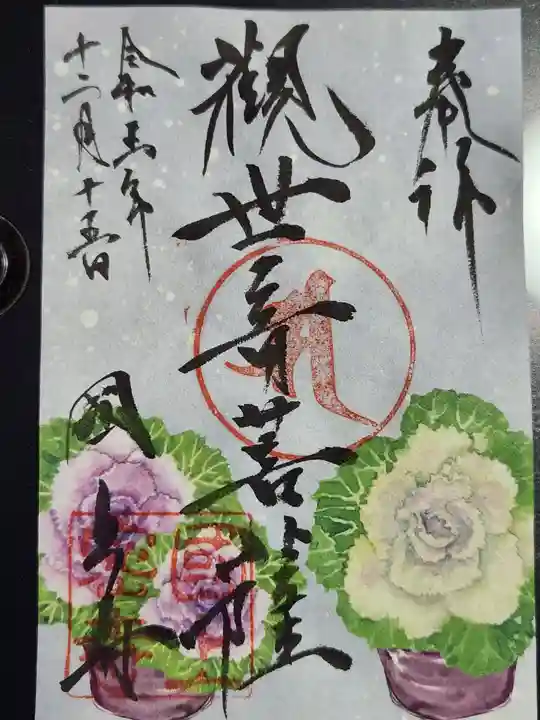 奉拝
観世音菩薩
令和五年
十二月十五日